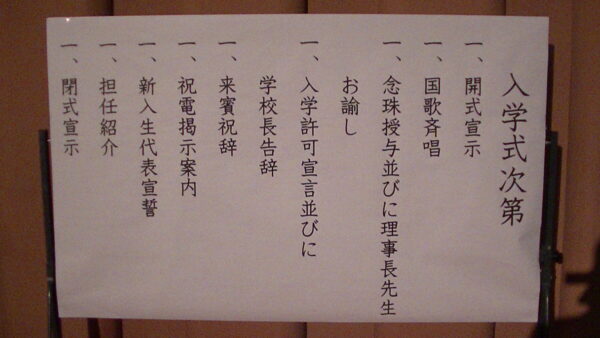 入学式次第
一、開式宣示
一、国歌斉唱
一、念珠授与並びに理事長先生
お諭し
一、入学許可宣言並びに
学校長告辞
一、来賓祝辞
一、祝電掲示案内
一、新入生代表宣誓
一、担任紹介
一、閉式宣示